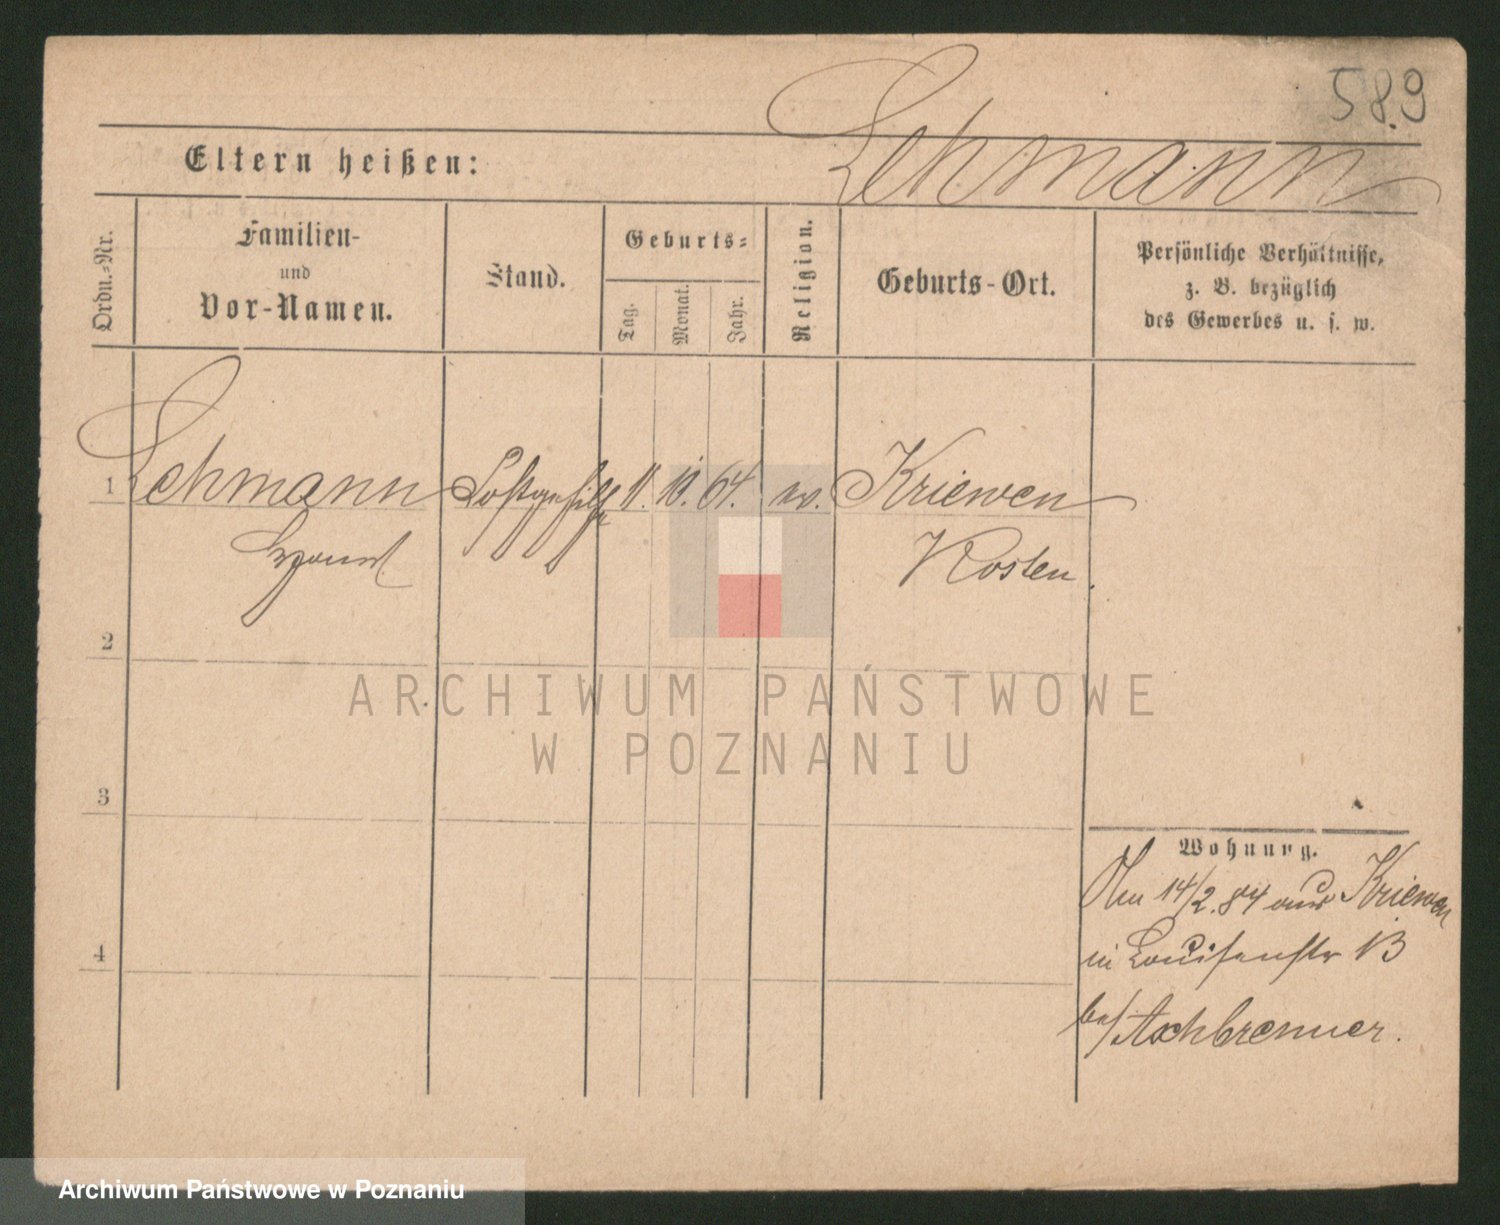 589
Lehmann
Eltern heißen:
Ordn.-Nr.
Familien-
und
Vor-Namen.
Stand.
Geburts-
Tag.
Monat.
Jahr.
Religion.
Geburts-Ort.
Persönliche Verhältnisse,
z. B. bezüglich
des Gewerbes u. s. w.
1 Lehmann Postgehilfe 11. 10. 64. ev. Kriewen
Kosten.
2
3
4
Wohnung.
Am 14/2. 84 aus Kriewen
in Louisenstr 13
bei Aschbrenner.
ARCHIWUM PAŃSTWOWE
W POZNANIU
Archiwum Państwowe w Poznaniu